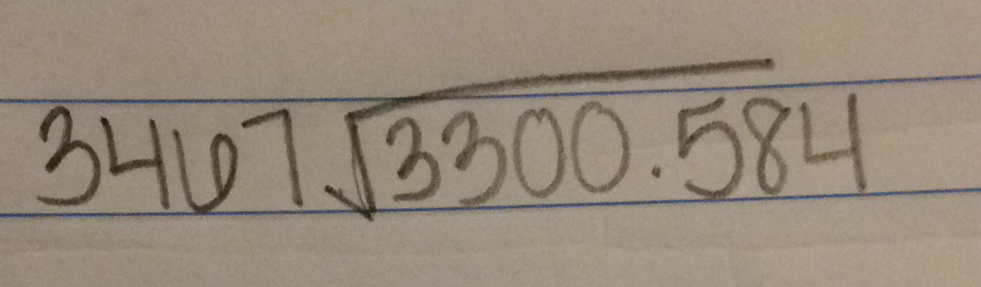 3467√3300.584